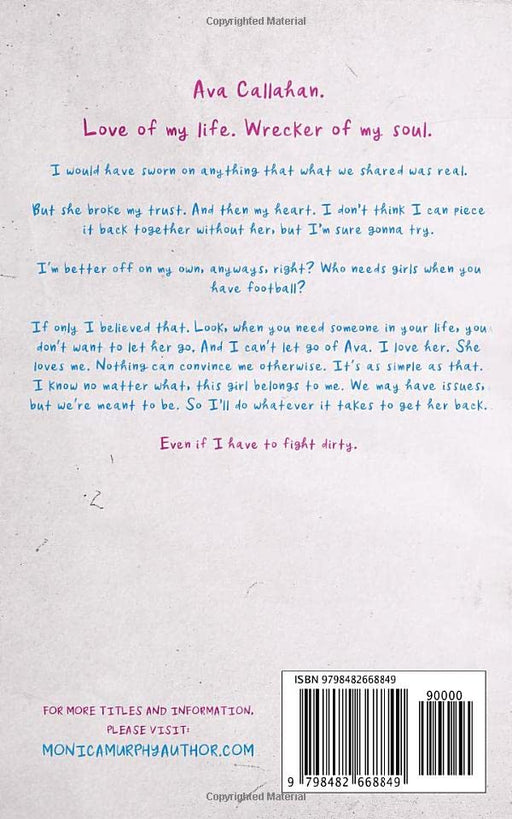 Copyrighted Material
Ava Callahan.
Love of my life. Wrecker of my soul.
I would have sworn on anything that what we shared was real.
But she broke my trust. And then my heart. I don't think I can piece
it back together without her, but I'm sure gonna try.
I'm better off on my own, anyways, right? Who needs girls when you
have football?
If only I believed that. Look, when you need someone in your life, you
don't want to let her go. And I can't let go of Ava. I love her. She
loves me. Nothing can convince me otherwise. It's as simple as that.
I know no matter what, this girl belongs to me. We may have issues,
but we're meant to be. So I'll do whatever it takes to get her back.
Even if I have to fight dirty.
FOR MORE TITLES AND INFORMATION,
PLEASE VISIT:
MONICAMURPHYAUTHOR.COM
ISBN 9798482668849
90000
9 798482 668849
Copyrighted Material